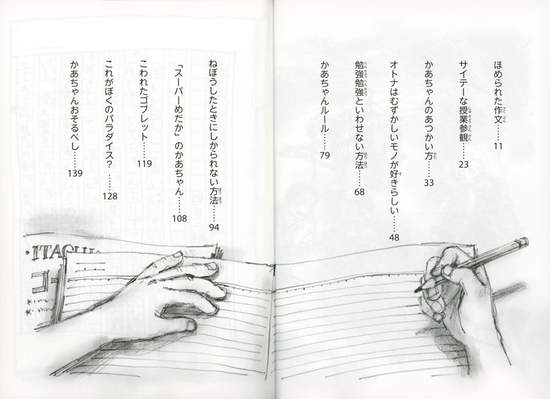 ほめられた作文……11
サイテーな授業参観……23
かあちゃんのあつかい方……33
オトナはむずかしいモノが好きらしい……48
勉強勉強といわせない方法……68
かあちゃんルール……79
ねぼうしたときにしかられない方法……94
「スーパーめだか」のかあちゃん……108
こわれたゴブレット……119
これがぼくのパラダイス?……128
かあちゃんおそるべし……139